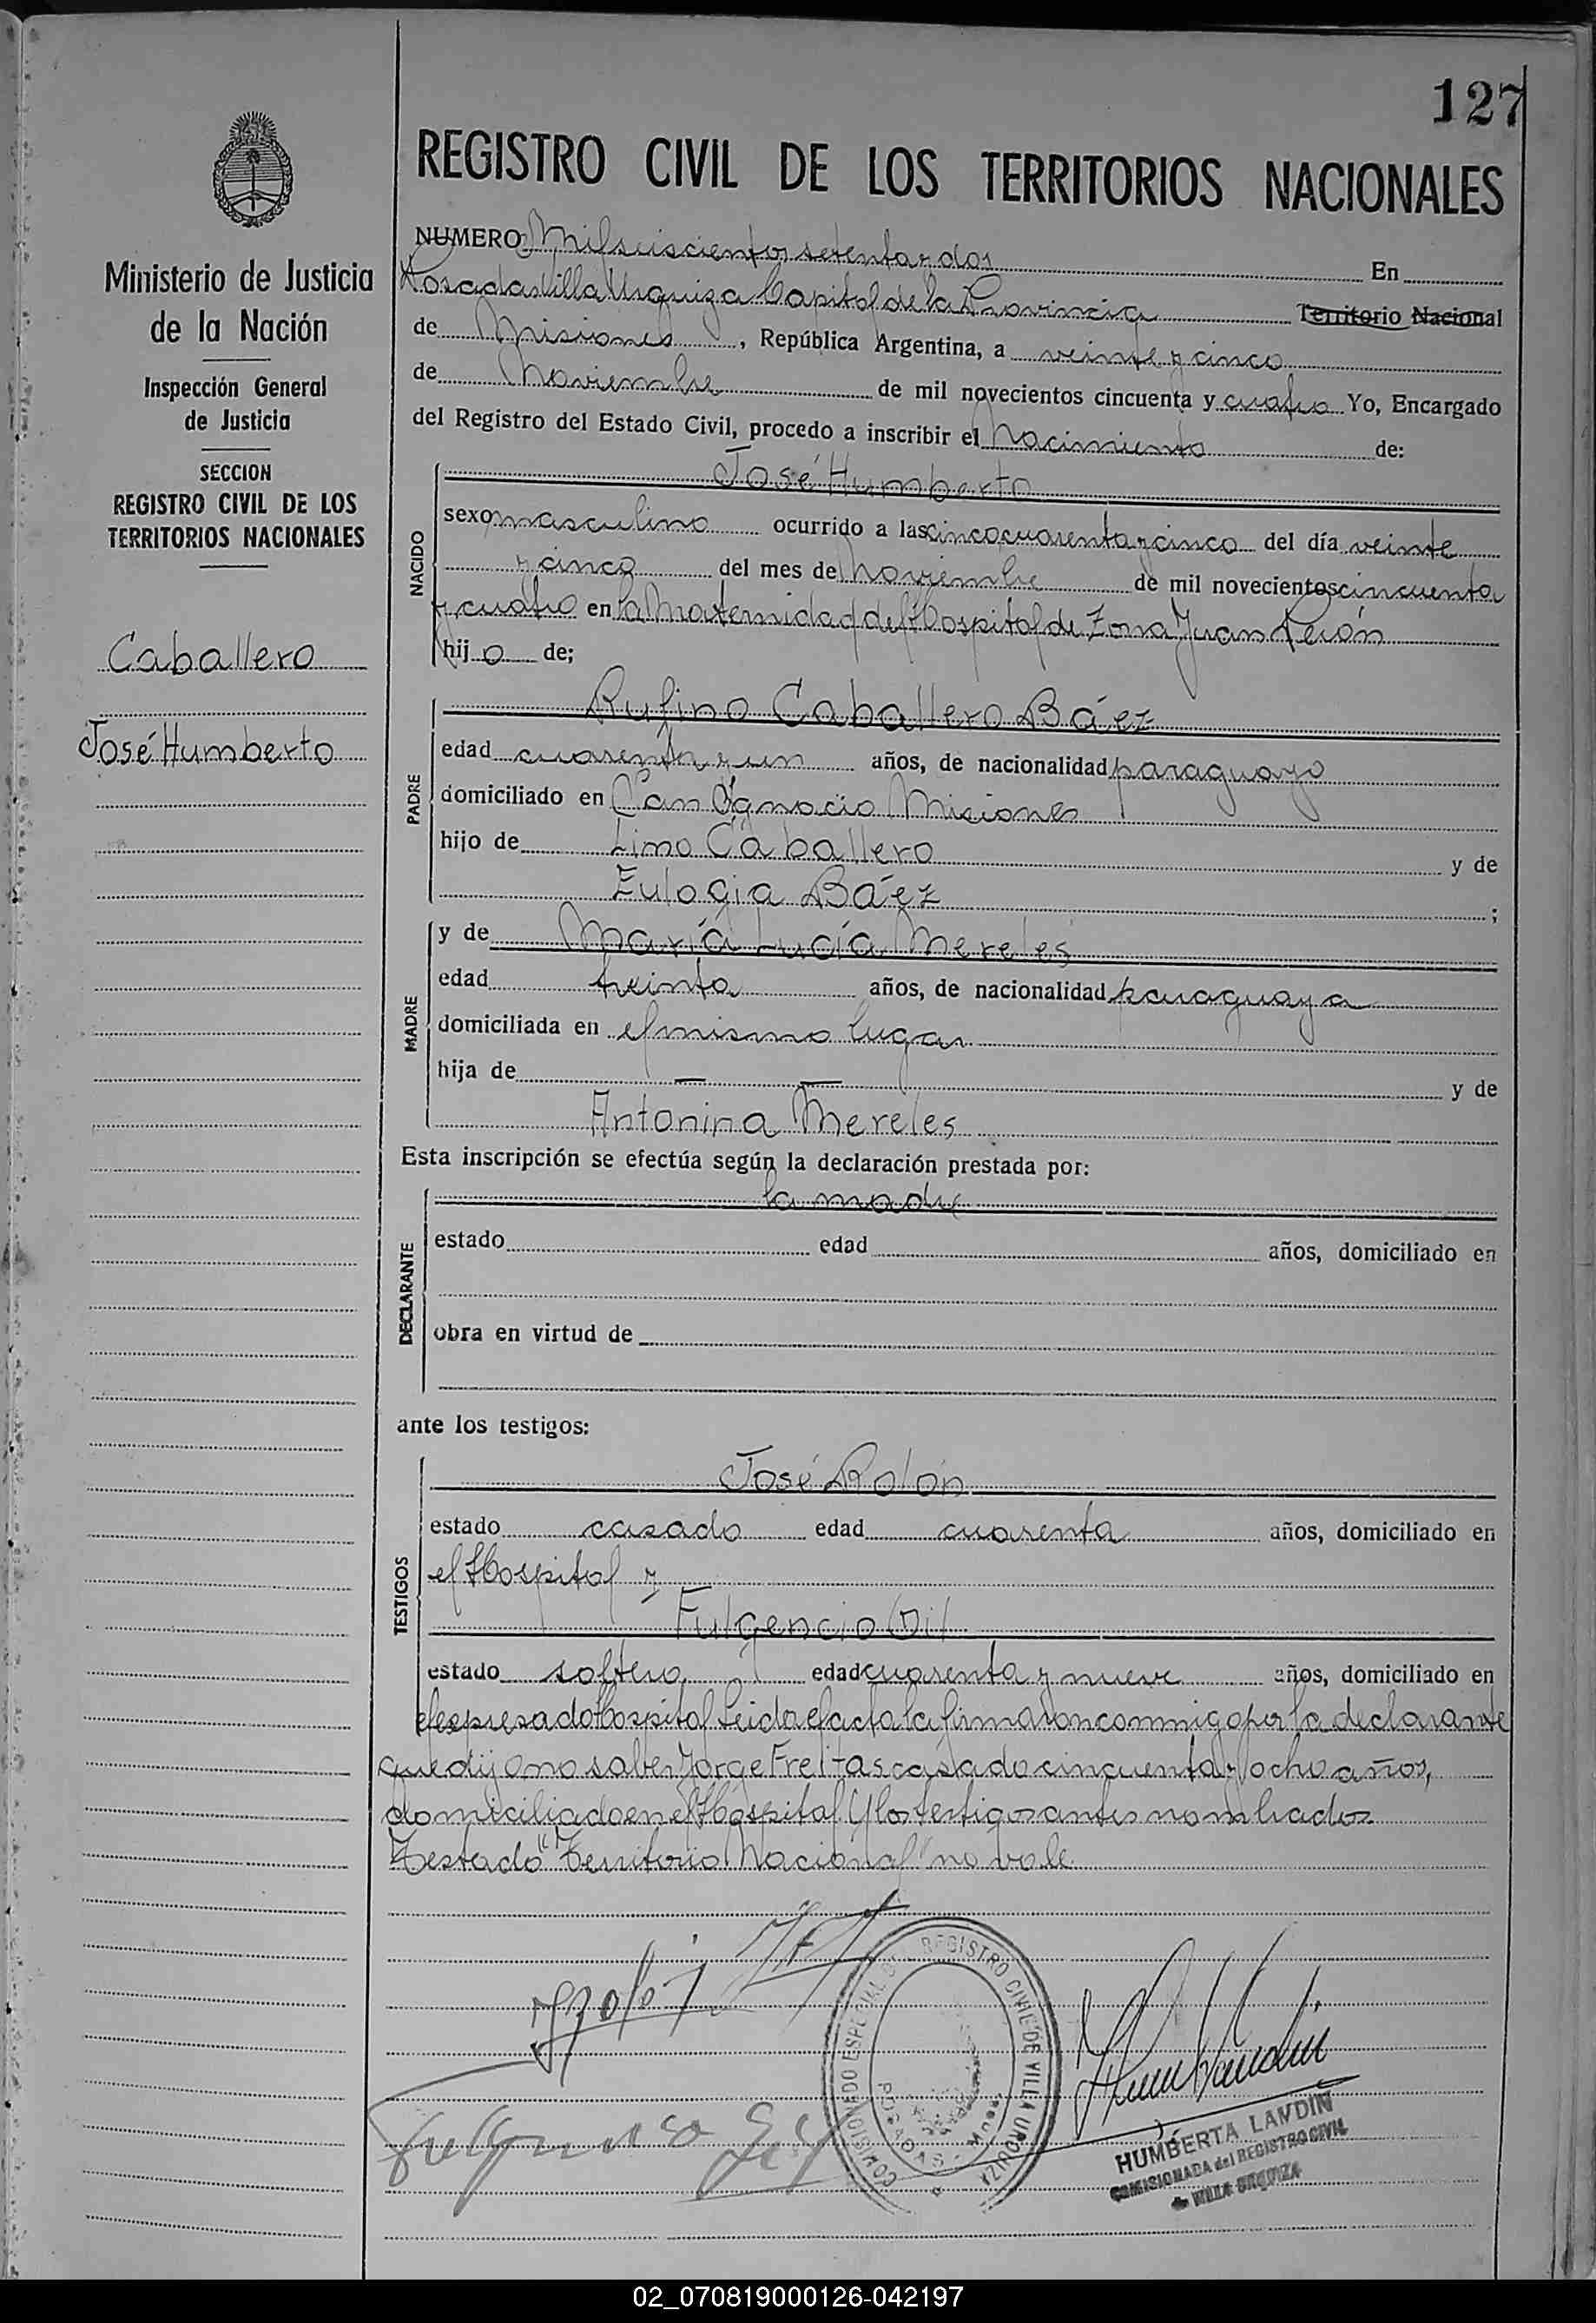 127
REGISTRO CIVIL DE LOS TERRITORIOS NACIONALES
Ministerio de Justicia
de la Nación
Inspección General
de Justicia
SECCION
REGISTRO CIVIL DE LOS
TERRITORIOS NACIONALES
Caballero
José Humberto
NUMERO Mil seiscientos setenta y dos En
Posadas Villa Urquiza Capital de la Provincia Territorio Nacional
de Misiones, República Argentina, a veinte y cinco
de Noviembre de mil novecientos cincuenta y cuatro Yo, Encargado
del Registro del Estado Civil, procedo a inscribir el Nacimiento de:
NACIDO
José Humberto
sexo masculino ocurrido a las cinco cuarenta y cinco del día veinte
y cinco del mes de Noviembre de mil novecientos cincuenta
y cuatro en la Maternidad del Hospital de Zona Juan Perón
hijo de;
PADRE
Rufino Caballero Báez
edad cuarenta y un años, de nacionalidad paraguayo
domiciliado en San Ignacio Misiones
hijo de Limo Caballero y de
Eulogia Báez ;
MADRE
y de María Lucía Mereles
edad treinta años, de nacionalidad paraguaya
domiciliada en el mismo lugar
hija de — — y de
Antonina Mereles
Esta inscripción se efectúa según la declaración prestada por:
DECLARANTE
la madre
estado edad años, domiciliado en
obra en virtud de
ante los testigos:
TESTIGOS
José Rolón
estado casado edad cuarenta años, domiciliado en
el Hospital y
Fulgencio Gil
estado soltero edad cuarenta y nueve años, domiciliado en
el expresado Hospital Leida el acta la firmaron conmigo por la declarante
que dijo no saber Jorge Freitas casado cincuenta y ocho años,
domiciliado en el Hospital y los testigos antes nombrados
Testado "Territorio Nacional" no vale
COMISIONADO ESPECIAL DEL REGISTRO CIVIL DE VILLA URQUIZA
POSADAS - Mnes.
HUMBERTA LANDIN
COMISIONADA del REGISTRO CIVIL
de VILLA URQUIZA
02_070819000126-042197